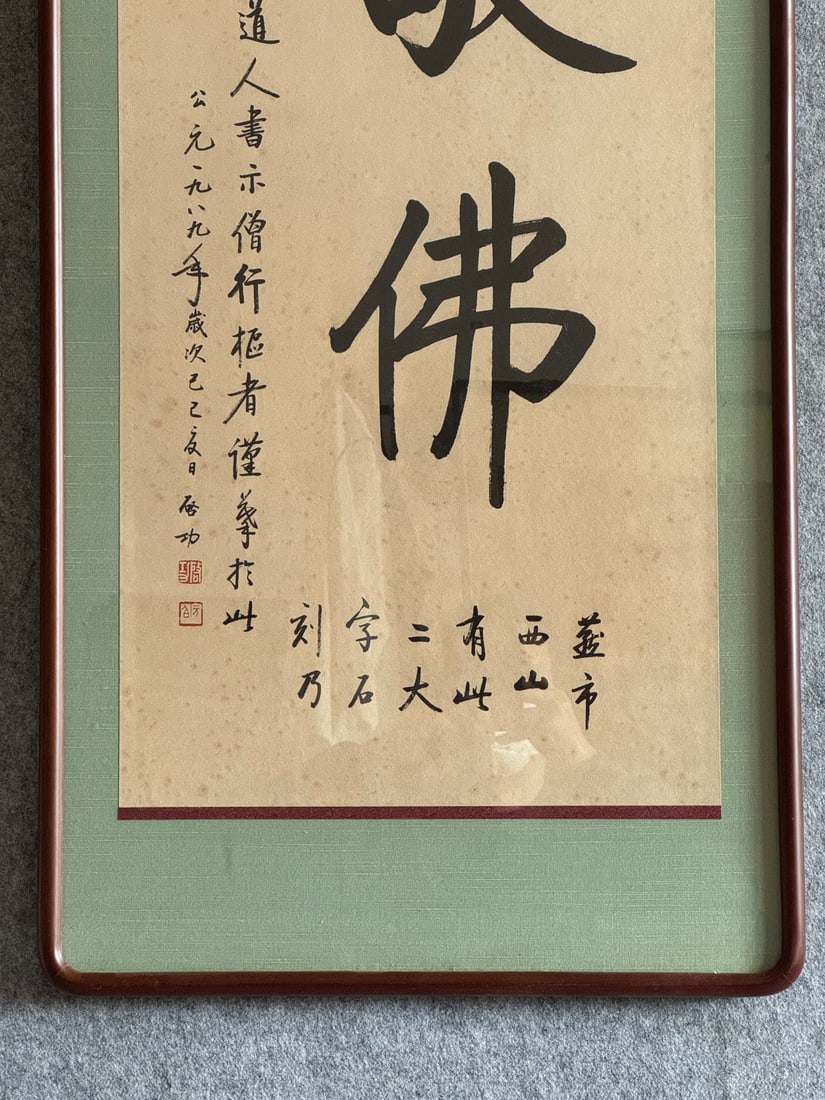 敬佛
燕市
西山
有此
二大
字石
刻乃
道人書示僧行樞者謹摹於此
公元一九八九年歲次己巳夏日 啓功